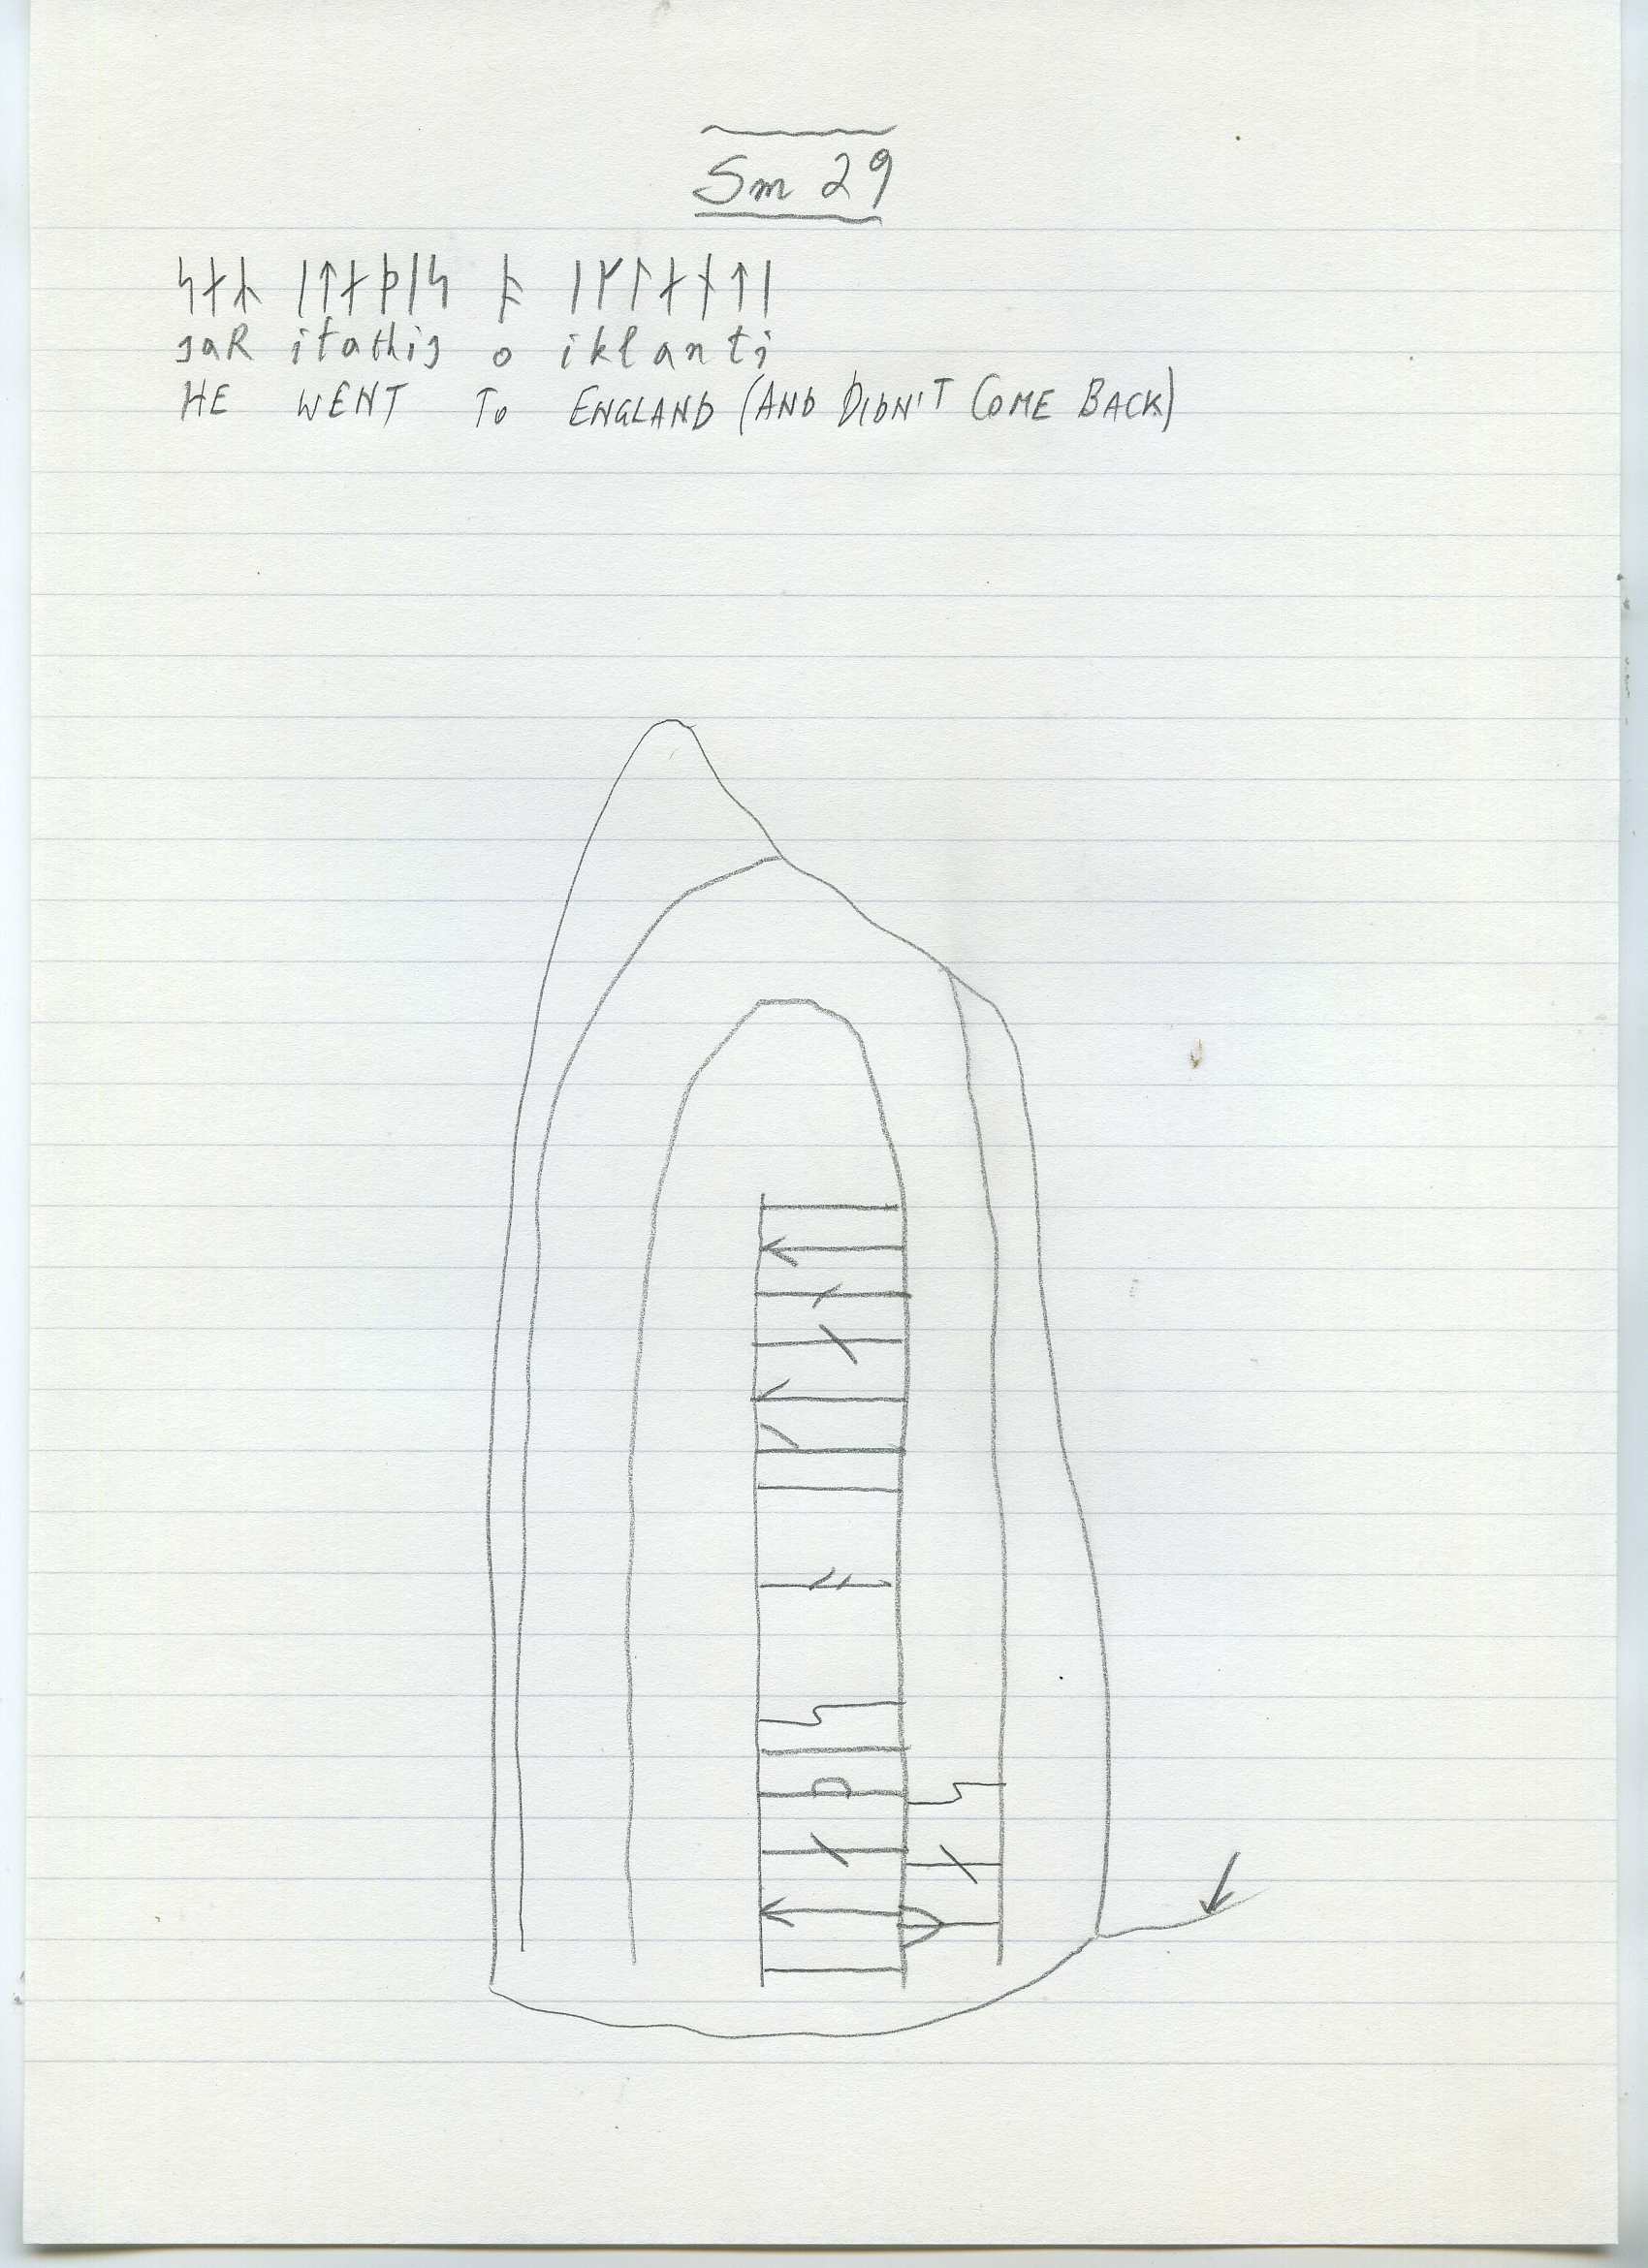 Sm 29
ᛋᛅᛦ ᛁᛏᛅᚦᛁᛋ ᚬ ᛁᚴᛚᛅᚾᛏᛁ
saR itathis o iklanti
HE WENT TO ENGLAND (AND DIDN'T COME BACK)
ᛋᛅᛦ
ᛁᛏᛅᚦᛁᛋ ᚬ ᛁᚴᛚᛅᚾᛏᛁ